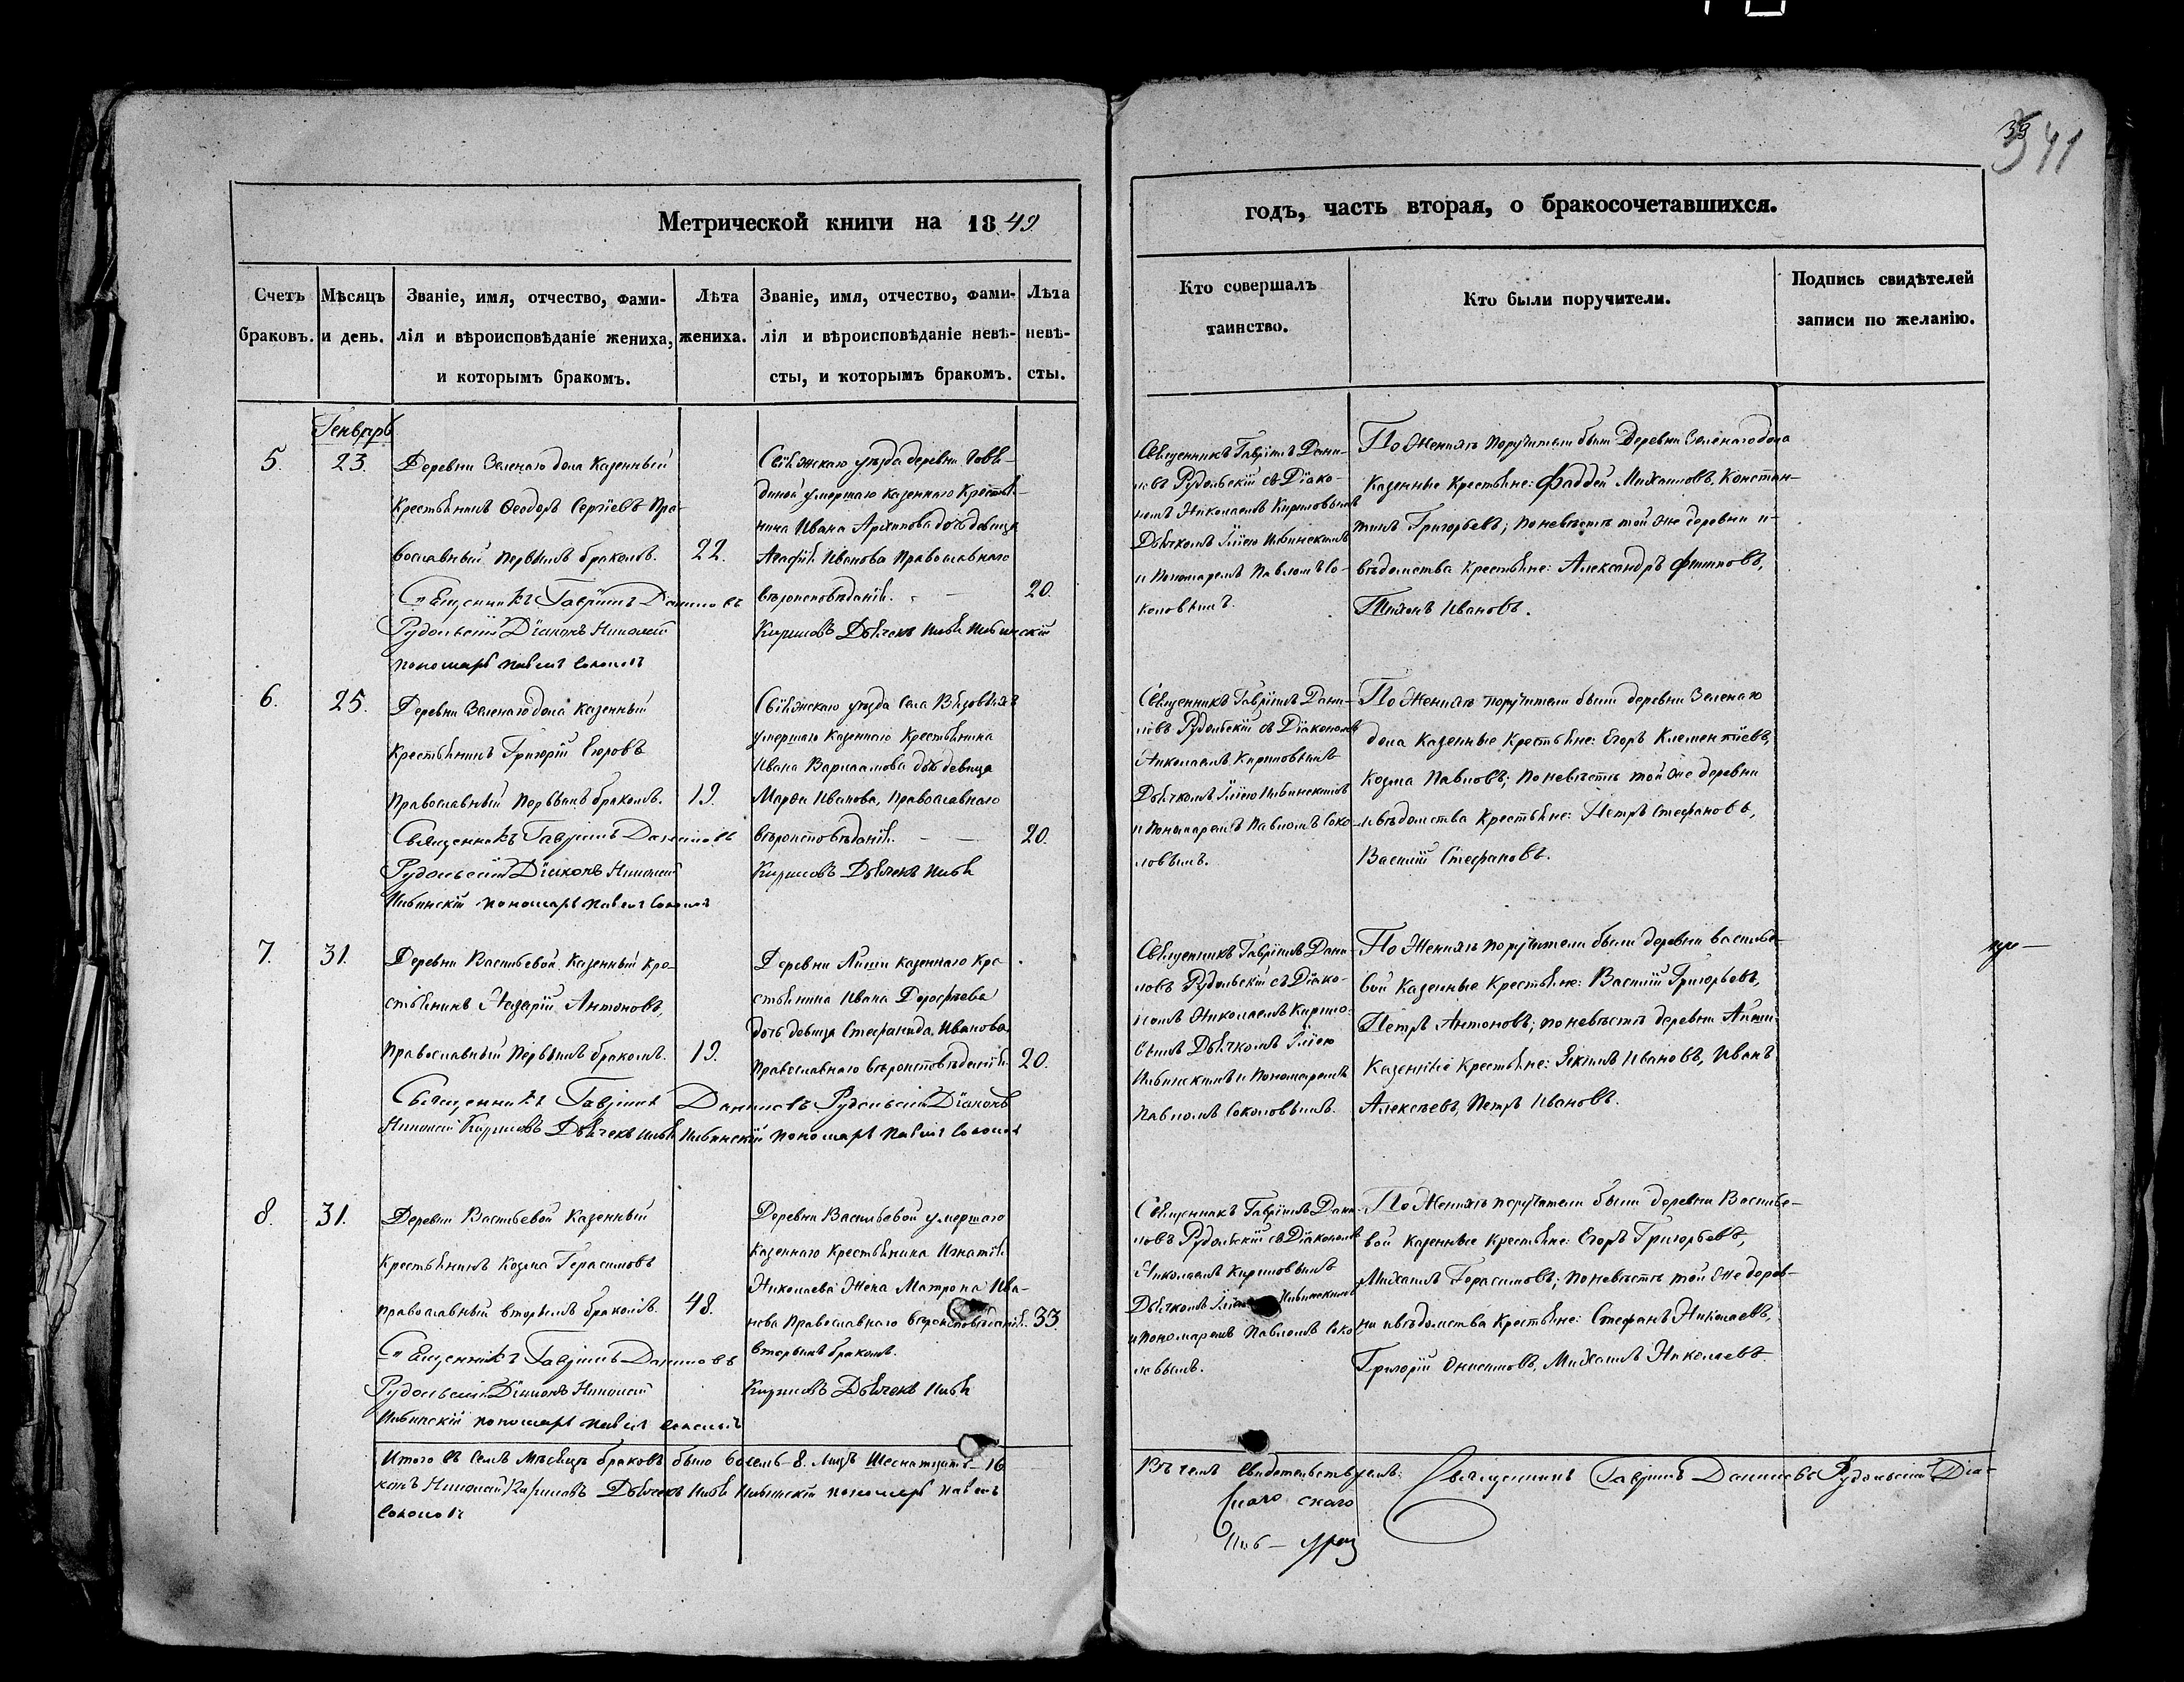 39 41
Метрической книги на 1849
годъ, часть вторая, о бракосочетавшихся.
Счетъ браковъ.
Мѣсяцъ и день.
Званіе, имя, отчество, фами-
лія и вѣроисповѣданіе жениха,
и которымъ бракомъ.
Лѣта жениха.
Званіе, имя, отчество, фами-
лія и вѣроисповѣданіе невѣ-
сты, и которымъ бракомъ.
Лѣта невѣ-
сты.
Кто совершалъ
таинство.
Кто были поручители.
Подпись свидѣтелей
записи по желанію.
Генварь
5. 23.
Деревни Зеленаго дола казенный
крестьянинъ Ѳеодоръ Сергіевъ Пра-
вославный первымъ бракомъ. 22.
Священникъ Гавріилъ Даниловъ
Рудольскій Діаконъ Николай
пономарь Павелъ Соколовъ
Свіяжскаго уѣзда деревни
умершаго казеннаго Крестья-
нина Ивана Архипова дочь девица
Агафія Иванова Православнаго
вѣроисповѣданія. 20.
Кириловъ Дьячекъ Илья Ильинскій
Священникъ Гавріилъ Дани-
ловъ Рудольскій съ Діако-
номъ Николаемъ Кириловымъ
Дьячкомъ Іліею Ильинскимъ
и Пономаремъ Павломъ Со-
коловымъ.
По Женихѣ поручители были Деревни Зеленаго дола
Казенные Крестьяне: Фаддей Михаиловъ, Констан-
тинъ Григорьевъ; по невѣстѣ той же деревни и
вѣдомства крестьяне: Александръ Филиповъ,
Тихонъ Ивановъ.
6. 25.
Деревни Зеленаго дола казенный
Крестьянинъ Григорій Егоровъ
Православный первымъ бракомъ. 19.
Священникъ Гавріилъ Даниловъ
Рудольскій Діаконъ Николай
Ильинскій пономарь Павелъ Соколовъ
Свіяжскаго уѣзда Села Вязовыхъ
умершаго Казеннаго Крестьянина
Ивана Варлаамова дочь девица
Марѳа Иванова, Православнаго
вѣроисповѣданія. 20.
Кириловъ Дьячекъ Илья
Священникъ Гавріилъ Дани-
ловъ Рудольскій съ Діакономъ
Николаемъ Кириловымъ
Дьячкомъ Іліею Ильинскимъ
и Пономаремъ Павломъ Соко-
ловымъ.
По Женихѣ поручители были деревни Зеленаго
дола Казенные Крестьяне: Егоръ Клементіевъ,
Козма Павловъ; по невѣстѣ той же деревни
и вѣдомства Крестьяне: Петръ Стефановъ,
Василій Стефановъ.
7. 31.
Деревни Васильевой, Казенный Кре-
стьянинъ Назарій Антоновъ,
Православный первымъ бракомъ. 19.
Священникъ Гавріилъ Даниловъ Рудольскій Діаконъ
Николай Кириловъ Дьячекъ Илья Ильинскій пономарь Павелъ Соколовъ
Деревни казеннаго Кре-
стьянина Ивана Дороѳеева
дочь девица Стефанида Иванова
Православнаго вѣроисповѣданія. 20.
Священникъ Гавріилъ Дани-
ловъ Рудольскій съ Діако-
номъ Николаемъ Кирило-
вымъ Дьячкомъ Іліею
Ильинскимъ и Пономаремъ
Павломъ Соколовымъ.
По Женихѣ поручители были деревни Василье-
вой Казенные Крестьяне: Василій Григорьевъ,
Петръ Антоновъ; по невѣстѣ деревни
Казенные Крестьяне: Якимъ Ивановъ, Иванъ
Алексѣевъ, Петръ Ивановъ.
8. 31.
Деревни Васильевой Казенный
Крестьянинъ Козма Герасимовъ
православный вторымъ бракомъ. 48.
Священникъ Гавріилъ Даниловъ
Рудольскій Діаконъ Николай
Ильинскій пономарь Павелъ Соколовъ
Деревни Васильевой умершаго
Казеннаго Крестьянина Игнатія
Николаева Жена Матрона Ива-
нова Православнаго вѣроисповѣданія. 33.
вторымъ бракомъ.
Кириловъ Дьячекъ Илья
Священникъ Гавріилъ Дани-
ловъ Рудольскій съ Діакономъ
Николаемъ Кириловымъ
Дьячкомъ Ильинскимъ
и Пономаремъ Павломъ Соко-
ловымъ.
По Женихѣ поручители были деревни Василье-
вой казенные Крестьяне: Егоръ Григорьевъ,
Михаилъ Герасимовъ; по невѣстѣ той же дерев-
ни и вѣдомства Крестьяне: Стефанъ Николаевъ,
Григорій Онисимовъ, Михаилъ Николаевъ.
Итого въ семъ мѣсяцѣ браковъ было восемь-8. Лицъ Шеснатцать-16
конъ Николай Кириловъ Дьячекъ Илья Ильинскій пономарь Павелъ
Соколовъ
Въ чемъ свидетельствуемъ: Священникъ Гавріилъ Даниловъ Рудольскій Діа-